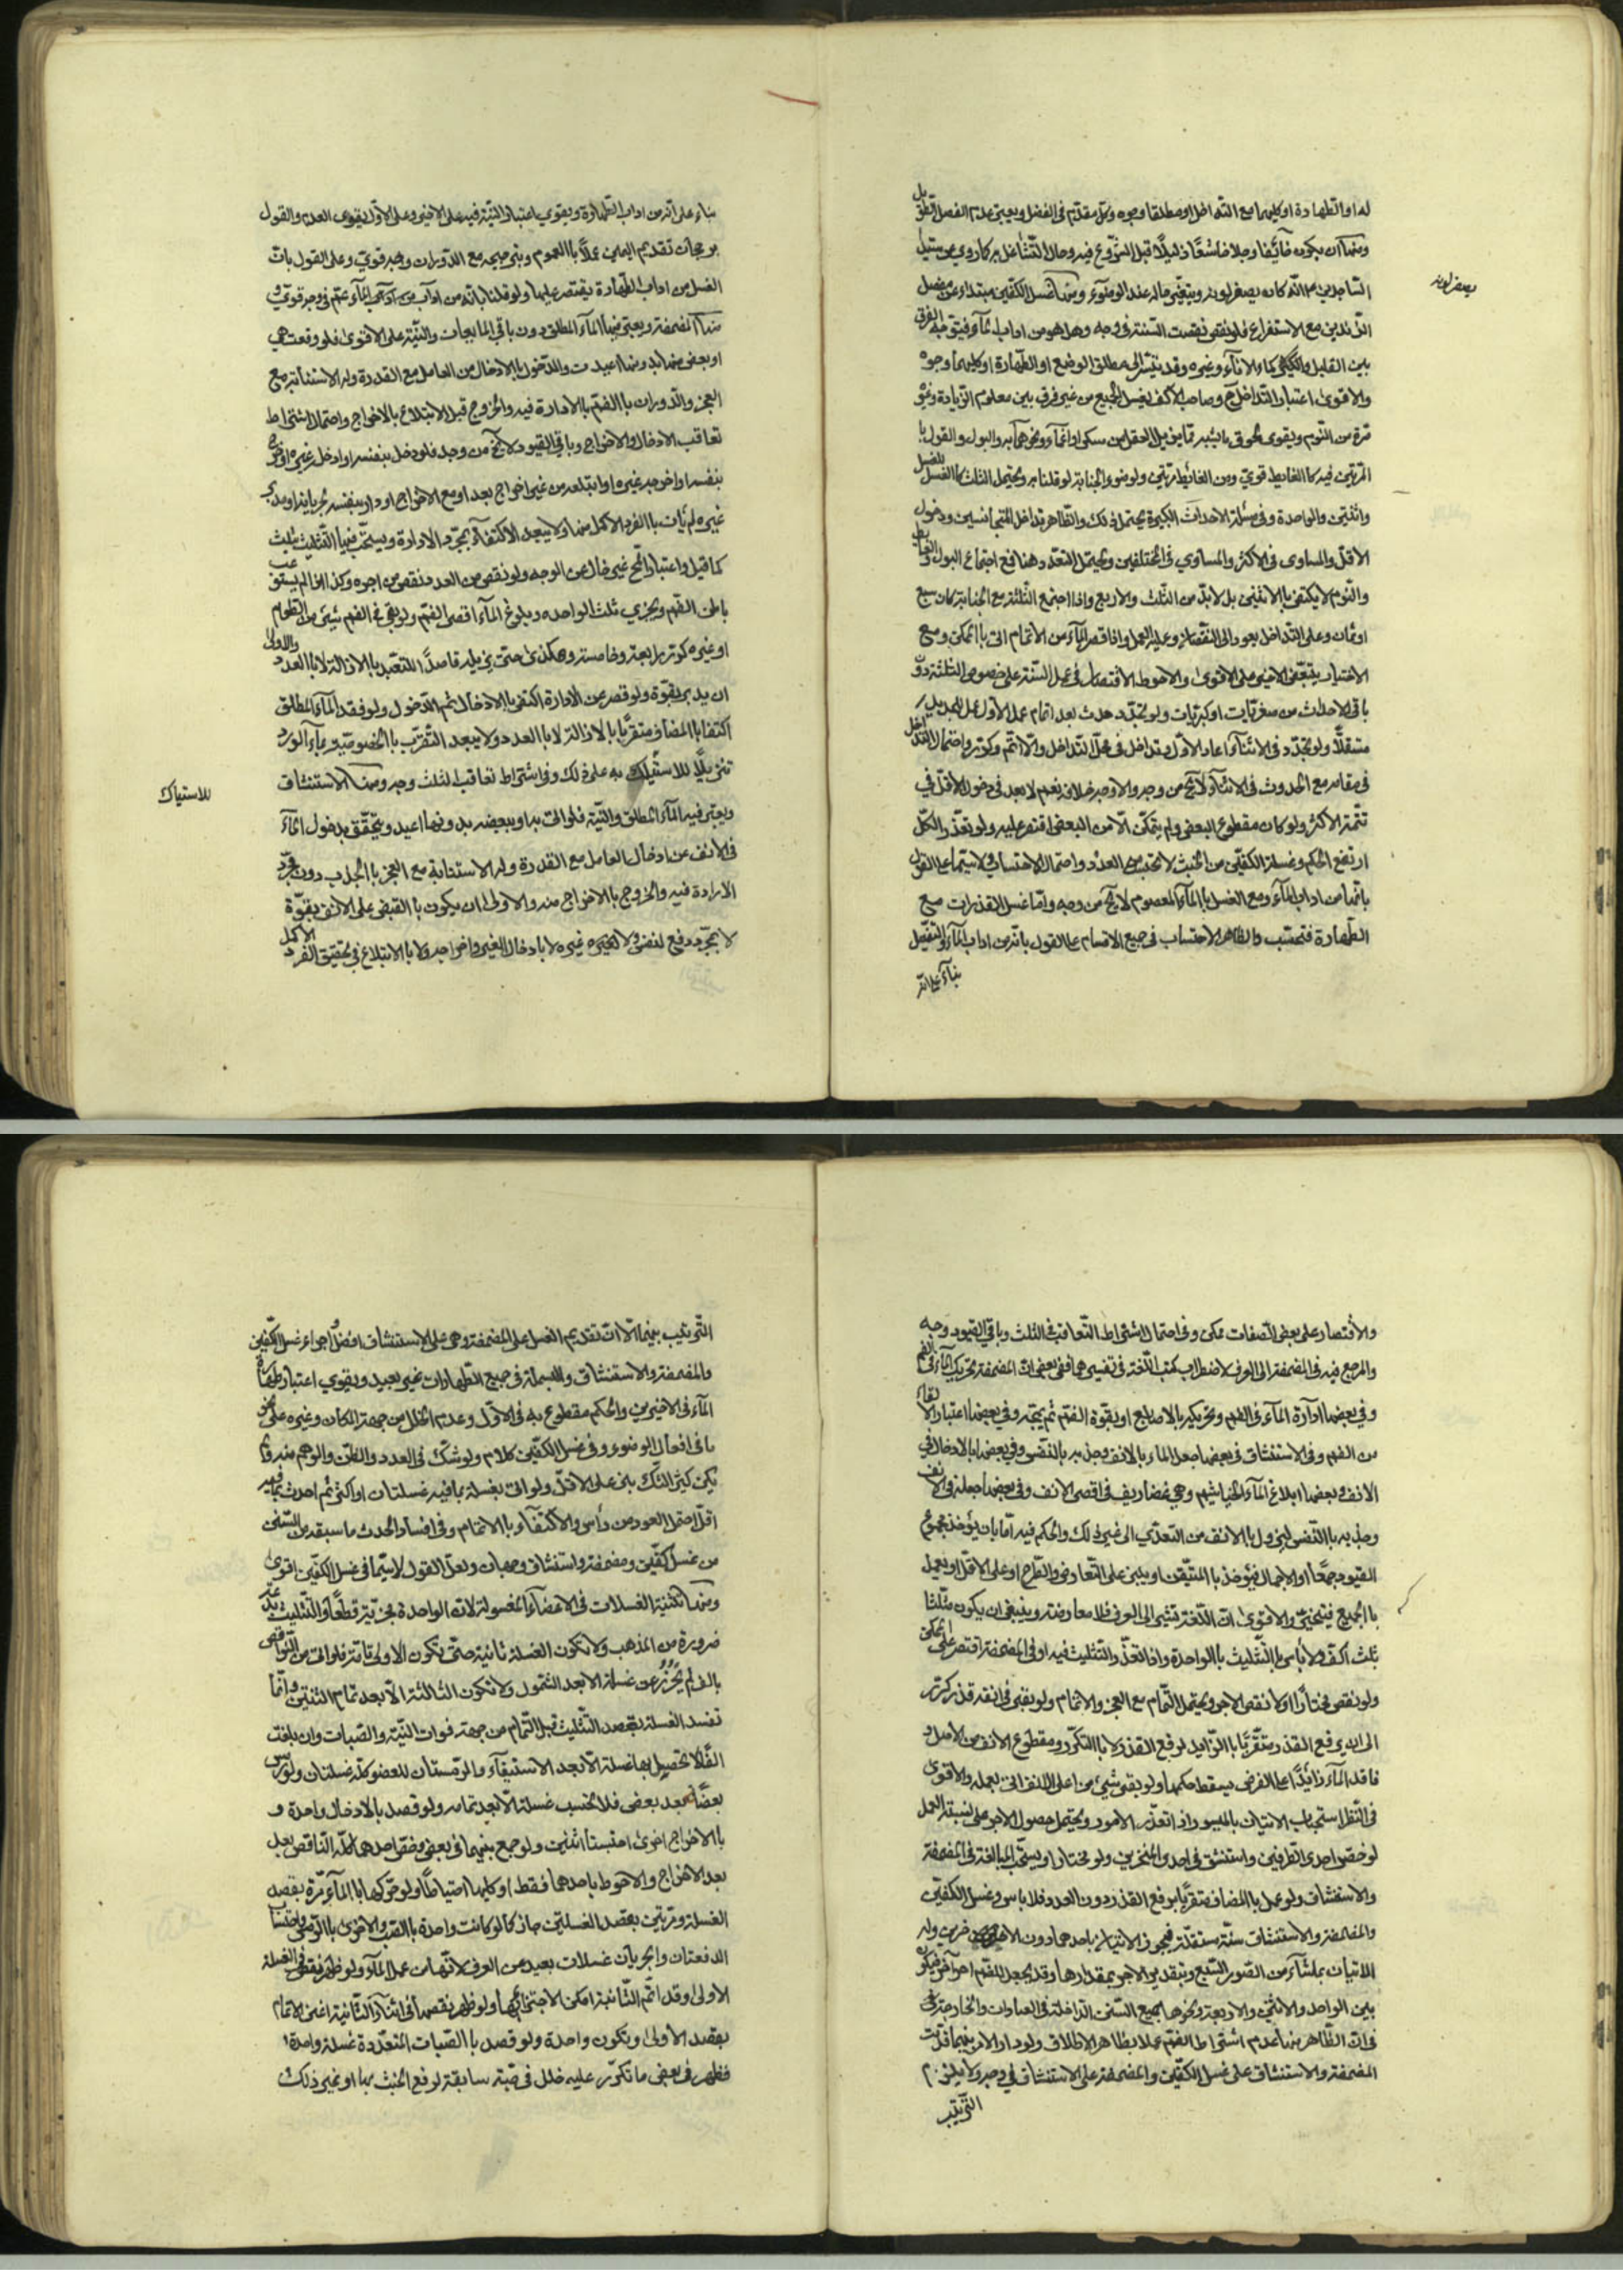 له او الطهارة او كليهما مع التداخل او مطلقا وجوه وكل مقدم في الفضل ويعتبر عدم الفصل
ومنها ان يكون خائفا وجلا خاشعا ذليلا قبل الشروع فيه وحال التشاغل به كما روي عن سيد
الساجدين انه كان يصفر لونه ويتغير حاله عند الوضوء ومنها غسل الكفين مبتداء من مفصل
يصفر لونه
الزندين مع الاستغراق فلو نقص نقصت السنة في وجه وهل هو من اداب الماء فيتوجه الفرق
بين القليل والكثير كماء الاناء وغيره وقد يتسرى الى مطلق الوضع او الطهارة او كليهما وجوه
والاقوى اعتبار التداخل وصاحب الاكف يغسل الجميع من غير فرق بين معلوم الزيادة وغيره
مرة من النوم ويقوى لحوق ما يشبهه مما يزيل العقل من سكر او اغماء ونحوهما به والبول والقول
المرتين فيه كالغايط قوي ومن الغائط مرتين ولو ضوء الجنابة لو قلنا به ويحتمل الثلث كالغسل
واثنتين والواحدة وفي مسئلة الاحداث الكبيرة يحتمل ذلك والظاهر تداخل المتجانسين ودخول
الاقل والمساوي في الاكثر والمساوي في المختلفين ويحتمل التعدد وهنا فمع اجتماع البول
والنوم لا يكتفى بالاثنين بل لا بد من الثلث والاربع واذا اجتمع الثلثة مع الجنابة كان سبع
او ثمان وعلى التداخل يعود الى النقصان وعليه العمل واذا قصر الماء عن الاتمام اتى بالممكن ومع
الاختيار يتبعض الاجر على الاقوى والاحوط الاقتصار في عمل السنة على خصوص الثلثة دون
باقي الاحداث من صغريات او كبريات ولو تجدد حدث بعد اتمام عمل الاول عمل للجديد
مستقلا ولو تجدد في الاثناء اعاد الاول وتداخل في محل التداخل والا اتم وكرر واحتمال التداخل
في مقامه مع الحدوث في الاثناء لا يخ من وجه والاوجه خلافه نعم لا بعد في دخول الاقل في
تتمة الاكثر ولو كان مقطوع البعض ولم يتمكن الا من البعض اقتصر عليه ولو تعذر الكل
ارتفع الحكم وغسلة الكفين من الخبث لا تحتسب من العدد واحتمال الاحتساب لا سيما على القول
بانها من اداب الماء ومع الغسل بالماء المعصوم لا يخ من وجه واما غسل القذرات مع
الطهارة فتحتسب والظاهر الاحتساب في جميع الاقسام على القول بانه من اداب الماء والتفصيل
بناء على انه
بناء على انه من اداب الطهارة ويقوى اعتبار النية فيه على الاخير وعلى الاول يقوى العدم والقول
برجحان تقديم اليمين عملا بالعموم
الغسل من اداب الطهارة يقتصر عليها ولو قلنا بانه من اداب الماء عم في وجه قوي و
منها المضمضة ويعتبر فيها الماء المطلق دون باقي المايعات والنية على الاقوى فلو وقعت هي
او بعض منها بدونها اعيدت والدخول بالادخال من العامل مع القدرة وله الاستنابة مع
العجز والدوران بالفم بالادارة فيه والخروج قبل الابتلاع بالاخراج واحتمال اشتراط
تعاقب الادخال والاخراج وباقي القيود لا يخ من وجه فلو دخل بنفسه او ادخل غيره او خرج
بنفسه او اخرجه غيره او ابتلعه من غير اخراج بعد او مع الاخراج او دار بنفسه
غيره لم يأت بالفرد الاكمل منها ولا يبعد الاكتفاء بمجرد الادارة ويستحب فيها التثليث بثلث
كما قيل واعتبار المج غير خال عن الوجه ولو نقص من العدد نقص من اجره وكذا اذا لم يستوعب
باطن الفم ويجزي ثلث الواحدة وبلوغ الماء اقصى الفم ولو بقي في الفم شيئ من الطعام
او غيره كرر برابعة وخامسة وهكذى حتى يزيله قاصدا للتعبد بالازالة لا بالعدد والاولى
ان يديره بقوة ولو قصر عن الادارة اكتفى بالادخال ثم الدخول ولو فقد الماء المطلق
اكتفا بالمضاف متقربا بالازالة لا بالعدد ولا يبعد التقرب بالخصوصية بماء الورد
تنزيلا للاستياك به على ذلك وفي اشتراط تعاقب الثلث وجه ومنها الاستنشاق
للاستياك
ويعتبر فيه الماء المطلق والنية فلو اتى به او ببعضه بدونها اعيد ويتحقق بدخول الماء
في الانف عن ادخال العامل مع القدرة وله الاستنابة مع العجز بالجذب دون مجرد
الارادة فيه والخروج بالاخراج منه والاولى ان يكون بالقبض على الانف بقوة
لا بمجرد دفع النفس ولا لغيره غيره لا بادخال الغير واخراجه ولا بالابتلاع في تحقيق الفرد الاكمل
والاقتصار على بعض الصفات ممكن وفي احتمال اشتراط التعاقب في الثلث وباقي القيود وجه
والمرجع فيه في المضمضة الى العرف لاضطراب كتب اللغة في تفسيرهما ففي بعض ان المضمضة تحريك الماء في الفم
وفي بعضها ادارة الماء في الفم وتحريكه بالاصابع او بقوة الفم ثم يمجه وفي بعضها اعتبار الالقاء
من الفم وفي الاستنشاق في بعضها جعل الماء بالانف وجذبه بالنفس وفي بعضها بالادخال في
الانف وبعضها ابلاغ الماء الخياشيم وهي غضاريف في اقصى الانف وفي بعضها جعله في الانف
وجذبه بالنفس لينزل بالانف من التعدي الى غير ذلك والحكم فيه اما بان يؤخذ بمجموع
القيود جمعا او الاجمال فيؤخذ بالمتيقن او يبنى على التعارض والطرح او على الاقل او يعمل
بالجميع فيتخير والاقوى ان اللغة تشير الى العرف فلا معارضة وينبغي ان يكون مثلثا
بثلث اكف ولا بأس بالتثليث بالواحدة واذا تعذر التثليث فيه او في المضمضة اقتصر على الممكن
ولو نقص مختارا او لا نقص الاجر ويحتمل التمام مع العجز والاتمام ولو بقي في انفه قذر كرر
الى ان يرفع القذر متقربا بالزايد لرفع القذر لا بالتكرر ومقطوع الانف من الاصل و
فاقد الماء زائدا على الفرض يسقط حكمها ولو بقي شيئ من اعلى الانف اتى بعمله والاقوى
في النظر استحباب الاتيان بالميسور اذا تعذر الامور ويحتمل حصول الاجر على نسبة العمل
لو خص احدى الطرفين واستنشق في احدى المنخرين ولو مختارا ويستحب المبالغة في المضمضة
والاستنشاق ولو عمل بالمضاف متقربا برفع القذر دون العدد فلا باس وغسل الكفين
والمضمضة والاستنشاق سنة مستقلة فيجوز الاتيان باحدهما دون الاخرين وله
الاتيان بما شاء من الصور السبع وبتقدير الاجر بمقدارها وقد يجعل للمقدم اجر اخر فيكون
بين الواحد والاثنين والاربعة ونحوها بجميع السنن الداخلة في العبادات والخارجة
فان الظاهر منها عدم اشتراط الفم عملا بظاهر الاطلاق ولو دار الامر بينها قدمت
المضمضة والاستنشاق على غسل الكفين والمضمضة على الاستنشاق في وجه ولا يلزم
الترتيب
الترتيب بينها الا ان تقديم الغسل على المضمضة وهي على الاستنشاق افضل واجراء غسل الكفين
والمضمضة والاستنشاق والبسملة في جميع الطهارات غير بعيد ويقوى اعتبار طهارة
الماء في الاخيرين والحكم مقطوع به في الاول وعدم الخلل من جهة المكان وغيره على نحو
باقي افعال الوضوء وفي غسل الكفين كلام ولو شك في العدد والظن والوهم منه ولم
يكن كثير الشك بنى على الاقل ولو اتى بغسلة بما فيه غسلتان او اكثر ثم احدث
اقل احتمل العود من رأس والاكتفاء بالاتمام وفي افساد الحدث ما سبقه من السنن
من غسل كفين ومضمضة واستنشاق وجهان ولعل القول لا سيما في غسل الكفين اقوى
ومنها تثنية الغسلات في الاعضاء المغسولة لان الواحدة مجزية قطعا والتثليث بدعة
ضرورة من المذهب ولا تكون الغسلة ثانية حتى تكون الاولى تامة فلو اتى من النواقص
بالف لم يجز عن غسلة الا بعد الشمول ولا تكون الثالثة الا بعد تمام الثنتين وانما
تفسد الغسلة بقصد التثليث قبل التمام من جهة فوات النية والصبات وان بلغت
الفا لا تحصيل بها غسلة الا بعد الاستيفاء والرمستان للعضو كله غسلتان ولو رمس
بعضا بعد بعض فلا تحتسب غسلة الا بعد تمامه ولو قصد بالادخال واحدة و
بالاخراج اخرى احتسبتا اثنتين ولو جمع بينهما في بعض وخص احدهما اكمله الناقص بعد
بعد الاخراج والاحوط باحدهما فقط او كليهما احتياطا ولو حركها بالماء مرة بقصد
الغسلة ومرتين بقصد الغسلتين جاز كما لو كانت واحدة بالصب والاخرى بالرمس واحتساب
الدفعتان والجريان غسلات بعيد عن العرف لانها من عمل الماء ولو ظهر نقص في الغسلة
الاولى وقد اتم الثانية امكن الاجتزاء بها ولو ظهر نقصها في اثناء الثانية اغنى الاتمام
بقصد الاولى وتكون واحدة ولو قصد بالصبات المتعددة غسلة واحدة
فظهر في بعض ما تكرر عليه خلل في صبة سابقة لرفع الخبث بها او غير ذلك